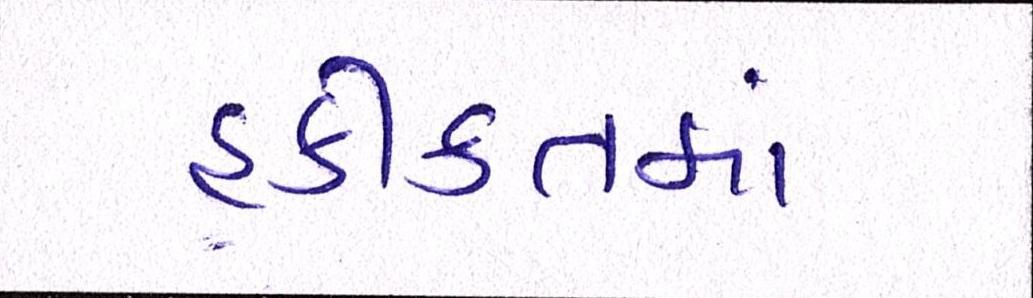 હકીકતમાં